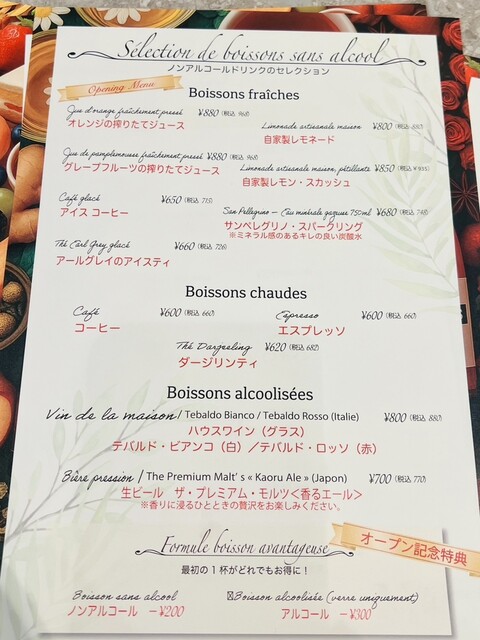 Sélection de boissons sans alcool
ノンアルコールドリンクのセレクション
Opening Menu
Boissons fraîches
Jus d'orange fraîchement pressé ¥880 (税込 968)
オレンジの搾りたてジュース
Limonade artisanale maison ¥800 (税込 880)
自家製レモネード
Jus de pamplemousse fraîchement pressé ¥880 (税込 968)
グレープフルーツの搾りたてジュース
Limonade artisanale maison, pétillante ¥850 (税込 935)
自家製レモン・スカッシュ
Café glacé ¥650 (税込 715)
アイス コーヒー
San Pellegrino – Eau minérale gazeuse 750ml ¥680 (税込 748)
サンペレグリノ・スパークリング
※ミネラル感のあるキレの良い炭酸水
Thé Earl Grey glacé ¥660 (税込 726)
アールグレイのアイスティ
Boissons chaudes
Café ¥600 (税込 660)
コーヒー
Espresso ¥600 (税込 660)
エスプレッソ
Thé Darjeeling ¥620 (税込 682)
ダージリンティ
Boissons alcoolisées
Vin de la maison / Tebaldo Bianco / Tebaldo Rosso (Italie) ¥800 (税込 880)
ハウスワイン（グラス）
テバルド・ビアンコ（白）／テバルド・ロッソ（赤）
Bière pression / The Premium Malt's « Kaoru Ale » (Japon) ¥700 (税込 770)
生ビール ザ・プレミアム・モルツ＜香るエール＞
※香りに浸るひとときの贅沢をお楽しみください。
Formule boisson avantageuse
オープン記念特典
最初の１杯がどれでもお得に！
Boisson sans alcool
ノンアルコール −¥200
Boisson alcoolisée (verre uniquement)
アルコール −¥300